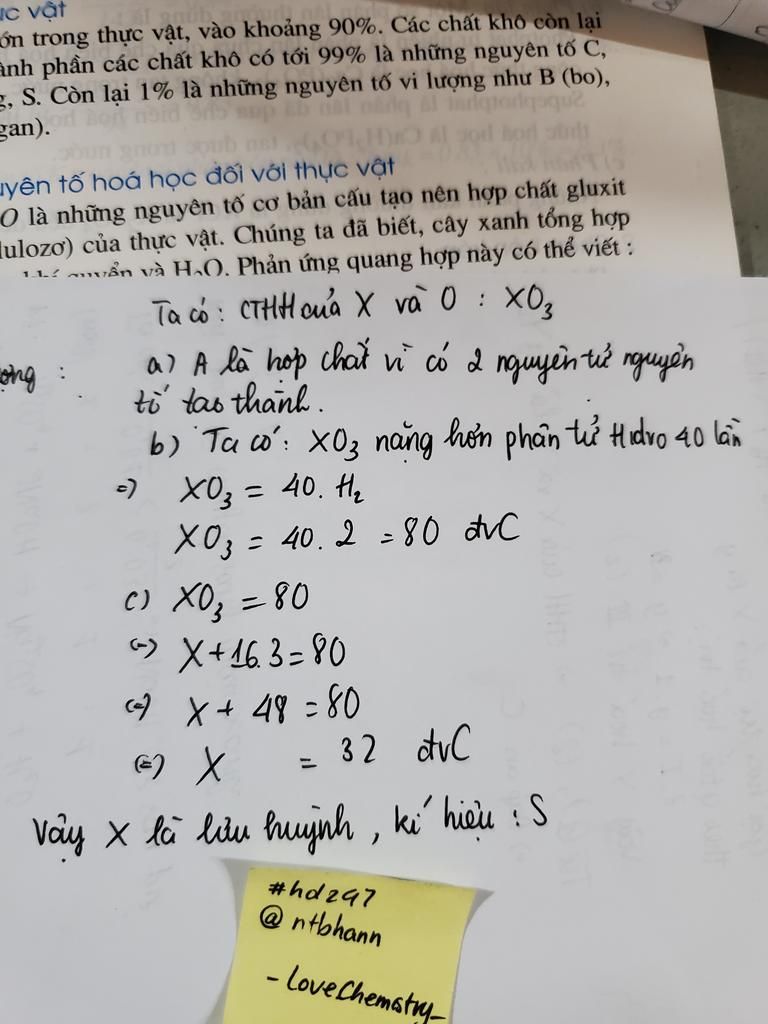 ực vật
ớn trong thực vật, vào khoảng 90%. Các chất khô còn lại
ành phần các chất khô có tới 99% là những nguyên tố C,
g, S. Còn lại 1% là những nguyên tố vi lượng như B (bo),
gan).
uyên tố hoá học đối với thực vật
O là những nguyên tố cơ bản cấu tạo nên hợp chất gluxit
lulozơ) của thực vật. Chúng ta đã biết, cây xanh tổng hợp
khí quyển và H₂O. Phản ứng quang hợp này có thể viết :
Ta có : CTHH của X và O : XO₃
ợng :
a) A là hợp chất vì có 2 nguyên tử nguyên
tố tạo thành.
b) Ta có : XO₃ nặng hơn phân tử Hidro 40 lần
=> XO₃ = 40. H₂
XO₃ = 40. 2 = 80 đvC
c) XO₃ = 80
(=) X + 16.3 = 80
(=) X + 48 = 80
(=) X = 32 đvC
Vậy X là lưu huỳnh, kí hiệu : S
#hdz97
@ntbhann
- LoveChemstry_